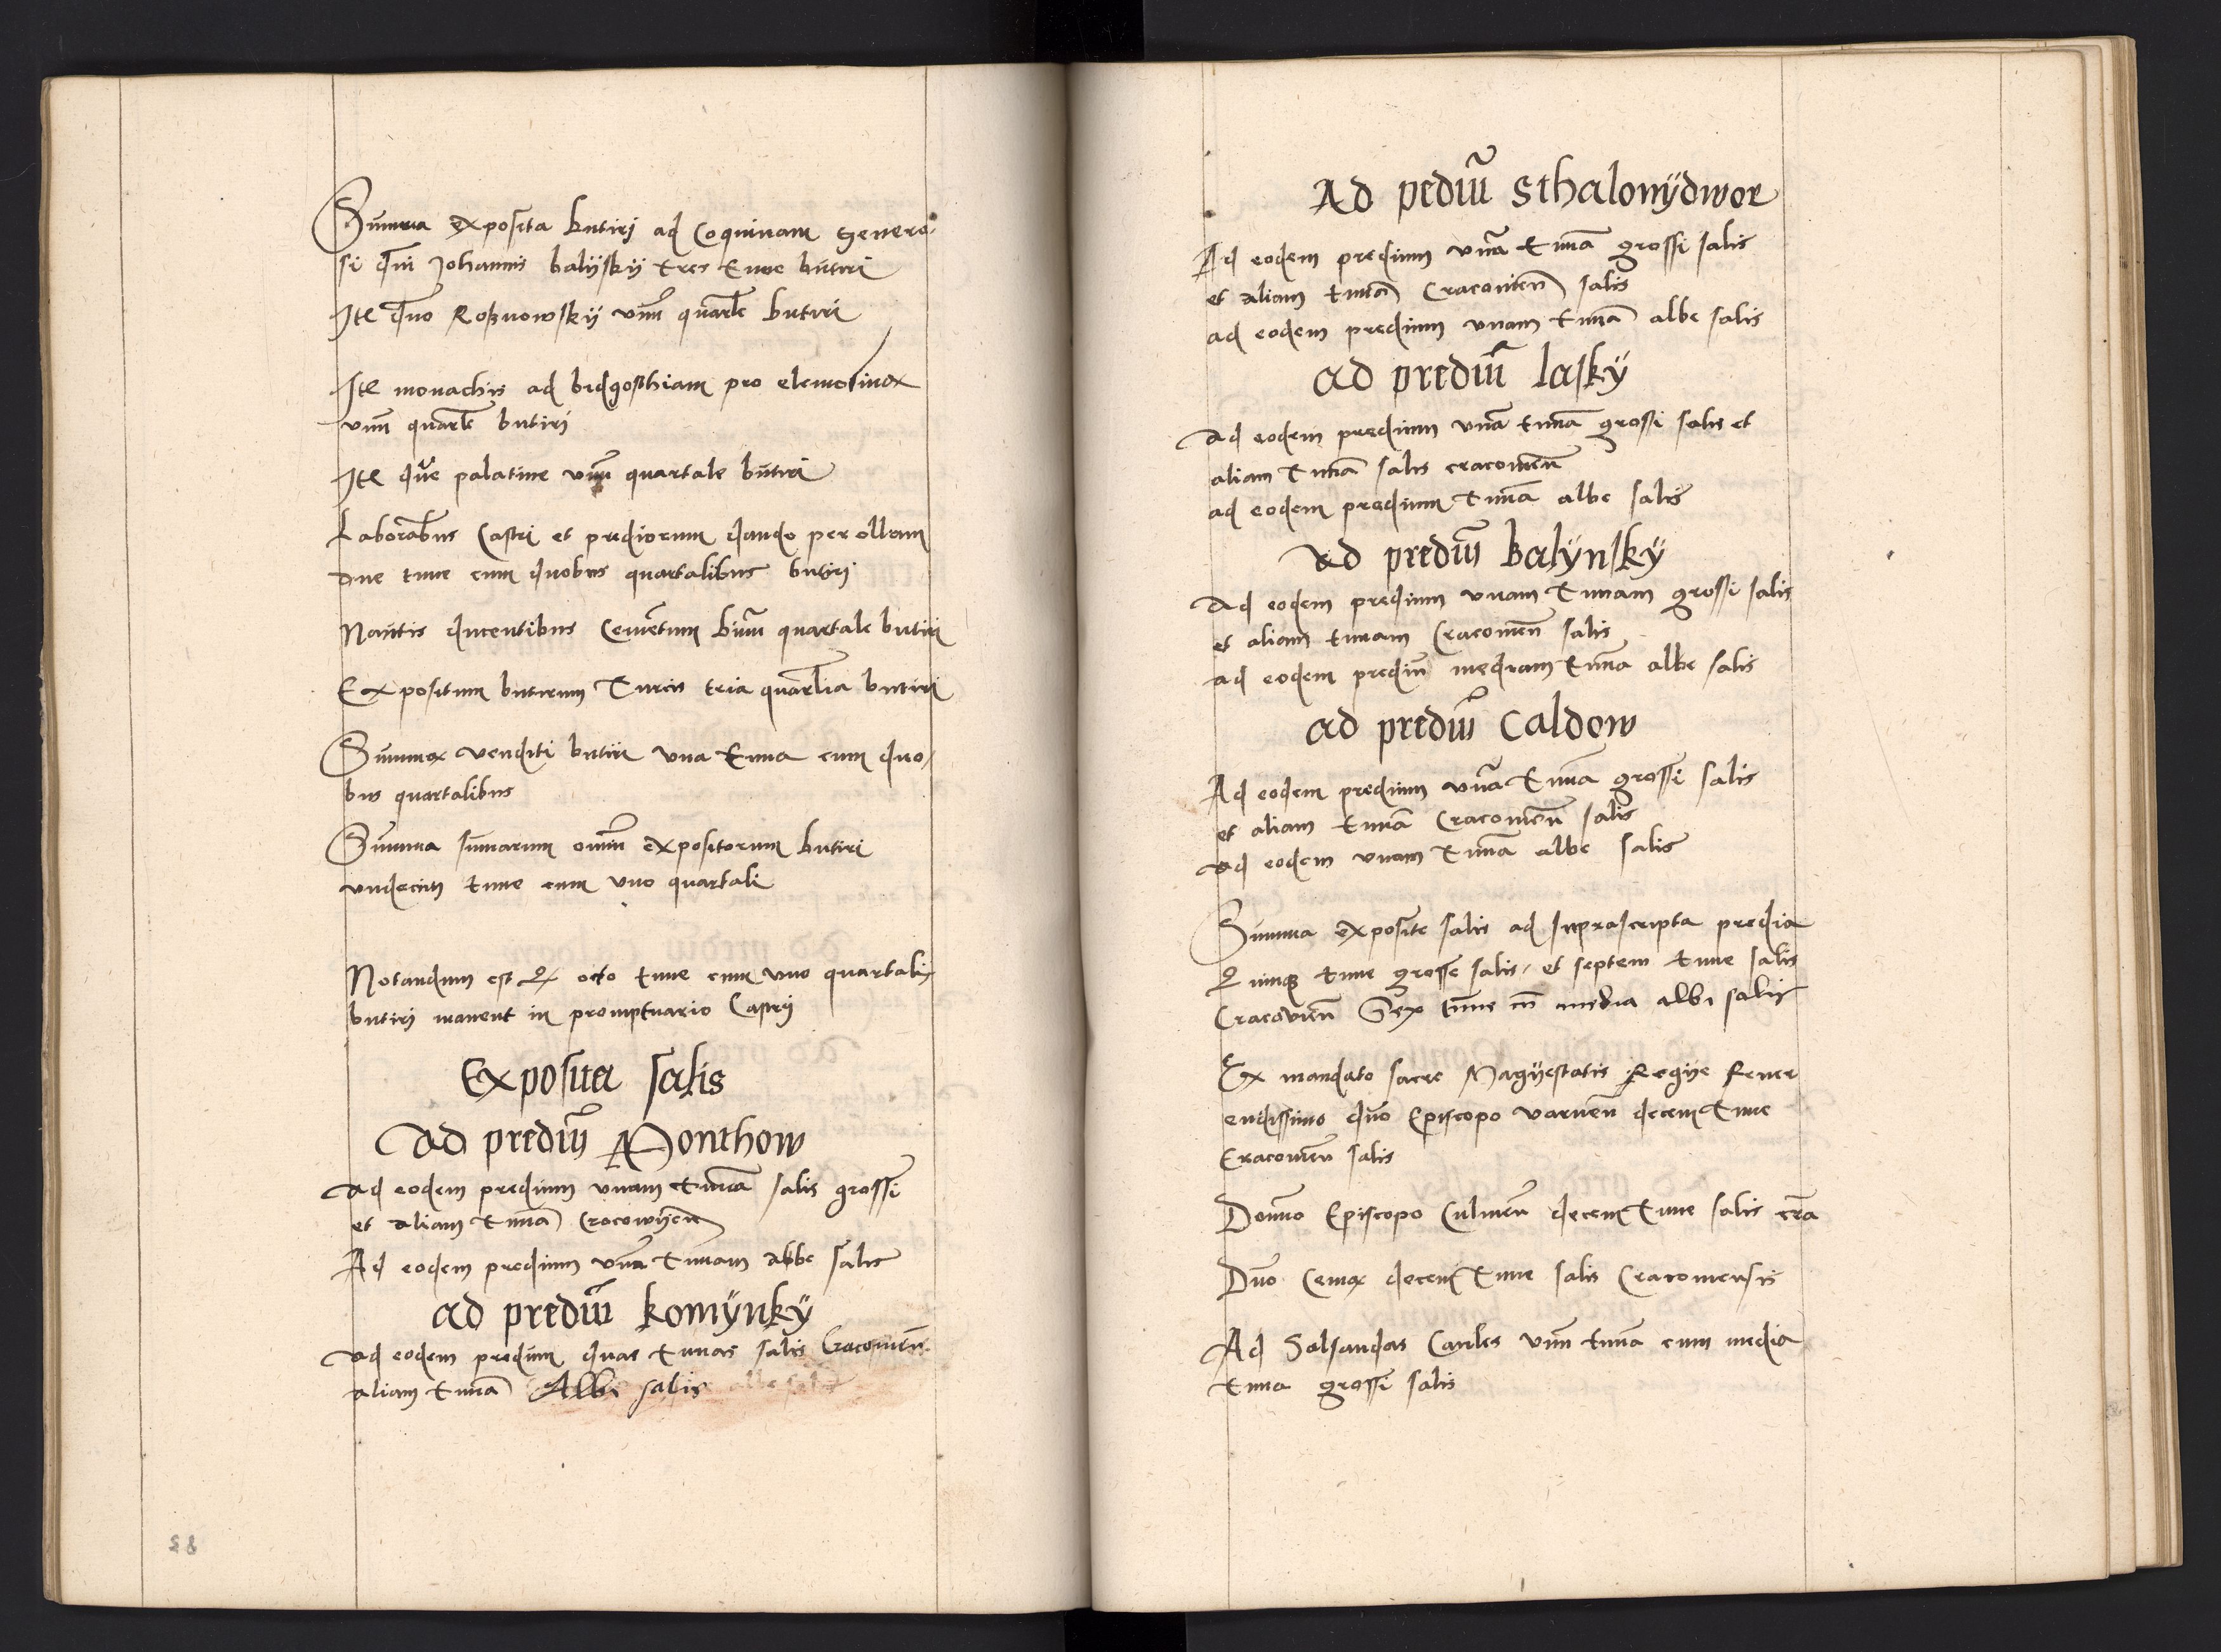 Summa exposita butiri ad Coquinam genero-
si dni Johannis balysky tres tune butiri
Ite dno Roßnowsky unū quarle butiri
Ite monachis ad bidgosthiam pro elemosina
unū quarle butiri
Ite dne palatine unū quartale butiri
Laborabus Castri et prediorum dando per ollam
due tune cum duobus quartalibus butiri
Nautis ducentibus Cemētum bīnū quartale butiri
Expositum butirum Turcis tria quarlia butiri
Summa venditi butiri una tunna cum duo-
bus quartalibus
Summa sumarum omniū expositorum butiri
undecim tune cum uno quartali
Notandum est Q octo tune cum uno quartali
butiri manent in promptuario Castri
Exposita salis
Ad prediū Monthow
ad eodem predium unam tunnā salis grossi
et aliam tunnā Crocowyēn
Ad eodem predium unā tunnam albe salis
ad prediū komynky
ad eodem predium duas tunnas salis Cracovien
aliam tunnā Albi salis
Ad pediū Sthalonydwor
Ad eodem predium unā tunnā grossi salis
et aliam tunnā Cracovien salis
ad eodem predium unam tunnā albe salis
ad prediū lasky
ad eodem predium unā tunnā grossi salis et
aliam tunnā salis cracovien
ad eodem predium tunnā albe salis
ad prediū balynsky
ad eodem predium unam tunnam grossi salis
et aliam tunnam Cracovien salis
ad eodem prediū mediam tunnā albe salis
ad prediū Caldow
Ad eodem predium unā tunnā grossi salis
et aliam tunnā Cracovien salis
ad eodem unam tunnā albe salis
Summa exposite salis ad suprascripta predia
Quinq tune grosse salis, et septem tune salis
Cracovien Sex tūne cū media albi salis
Ex mandato sacre Magyestatis Regye Rever
endissimo dno Episcopo varmēn decem tune
Cracovien salis
Domno Episcopo Culmēn decem tune salis cra
Dno Cema decem tune salis Cracoviensis
Ad Salsandas Carnes unū tunnā cum media
tunna grossi salis
58